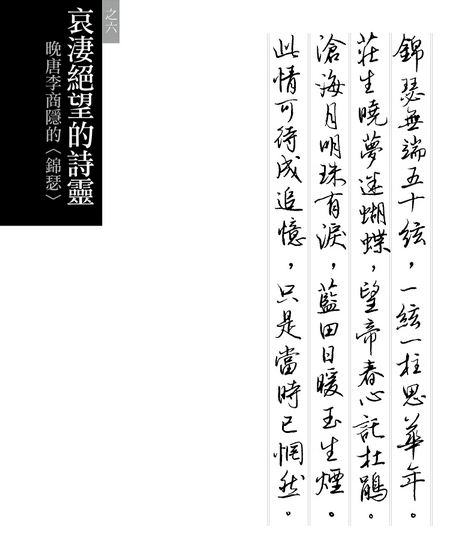 錦瑟無端五十絃，一絃一柱思華年。
莊生曉夢迷蝴蝶，望帝春心託杜鵑。
滄海月明珠有淚，藍田日暖玉生煙。
此情可待成追憶，只是當時已惘然。
之六
哀淒絕望的詩靈
晚唐李商隱的〈錦瑟〉